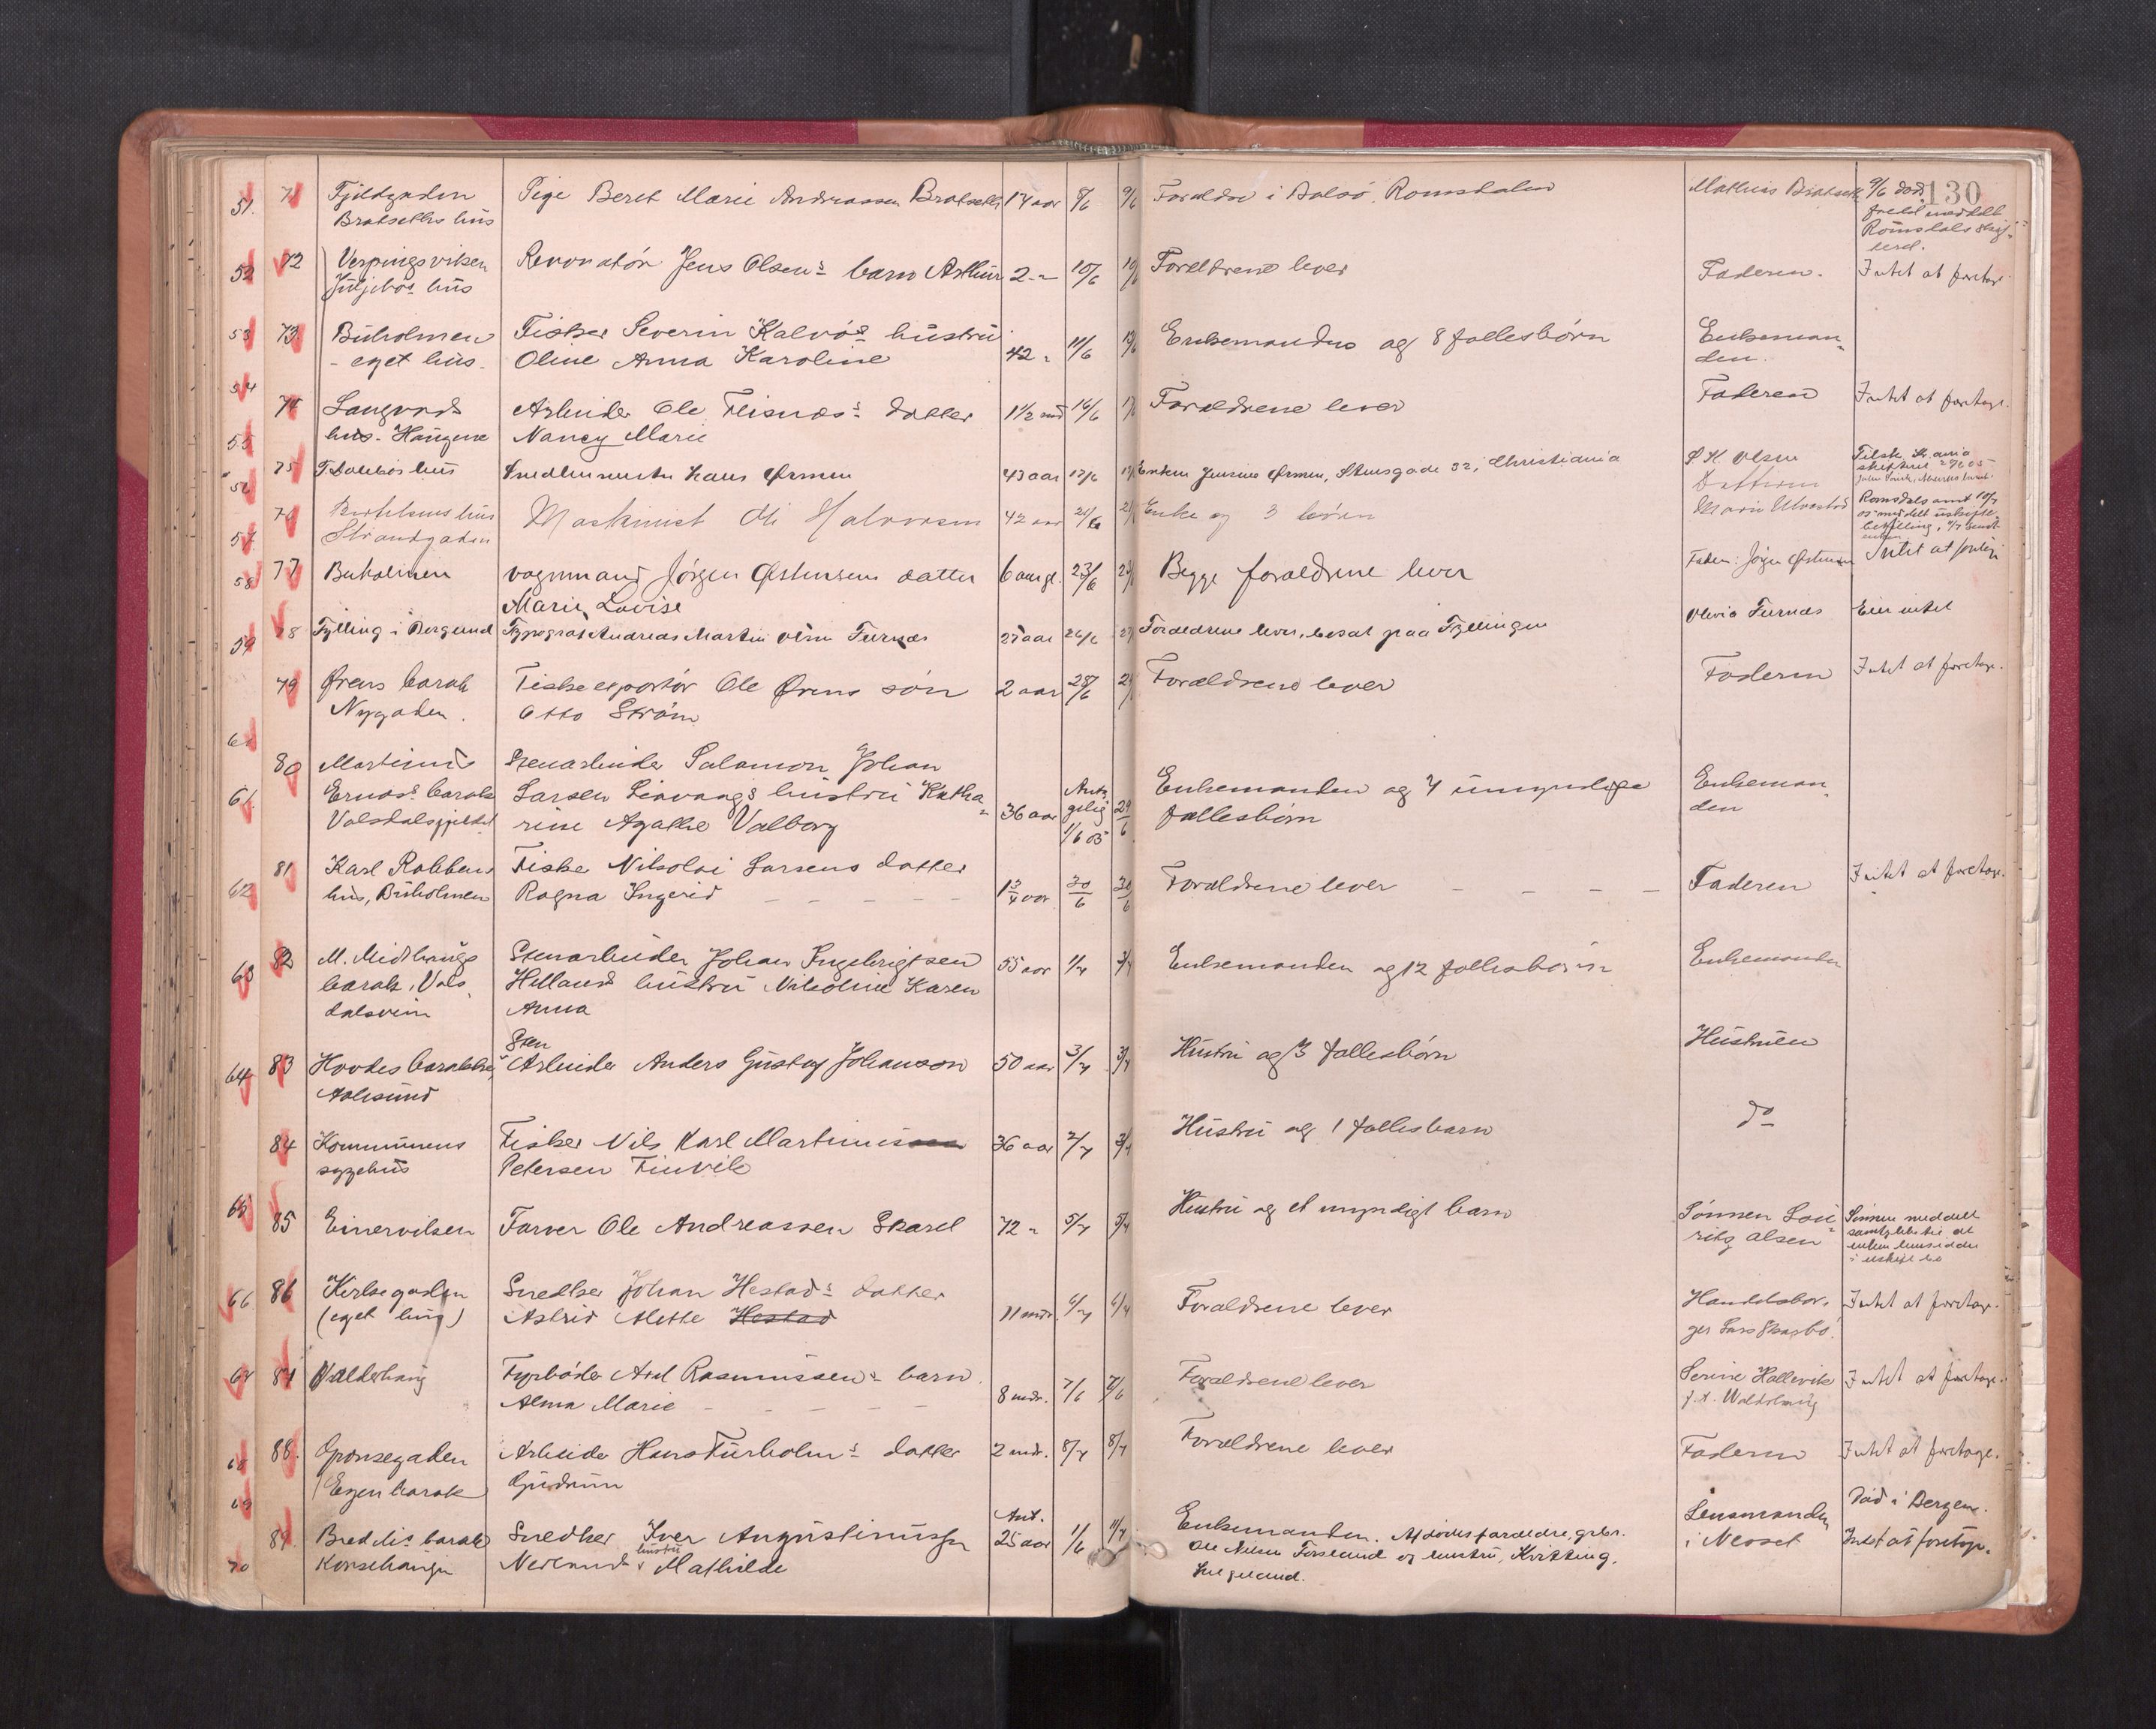 130
51. 71 Fjeldgaden Pige Beret Marie Andreassen Bratseth 17 aar 8/6 9/6 Forældre i Bolsø, Romsdalen Mathias Bratseth 9/6 døds
Bratseths hus
Romsdals
52 72 Verpingsviken Renovatør Jens Olsens barn Arthur 2 - 10/6 10/6 Forældrene lever Faderen. Intet at foretage
hus
53 73. Buholmen Fisker Severin Kalvøs hustru 42 " 11/6 13/6 Enkemanden og 8 fællesbørn Enkeman-
- eget hus. Oline Anna Karoline den.
54
74 Langvads Arbeider Ole Flisnæs's datter 1½ md 16/6 Forældrene lever Faderen Intet at foretage.
hus. Haugene Nancy Marie
55
56 75 hus Snedkermester Hans Ørmen 43 aar 17/6 Enken Jensine Ørmen, Stensgade 32, Christiania P. H. Olsen
76 Bertelsens hus Maskinist Ole Halvorsen 42 aar 21/6 Enke og 3 børn Marie Ulvestad Romsdals amt 10/7
57 Strandgaden
58 77 Buholmen Vognmand Jørgen Østensens datter 6 aar gl. 23/6 Begge forældrene lever Fader: Jørgen Østensen Intet at foretage
Marie Lovise
59 78 Fylling i Borgund Typograf Andreas Martin Olsen Furnæs 25 aar 26/6 Forældrene lever, bosat paa Fyllingen Olivia Furnæs Eier intet
79 Ørens barak Fiskeexportør Ole Ørens søn 2 aar 28/6 Forældrene lever Faderen Intet at foretage.
Nygaden. Otto Strøm
80 Martinus Stenarbeider Salomon Johan
61. Ernæs's barak Larsen Liavaags hustru Katha- 36 aar Antagelig 1/6 05 29/6 Enkemanden og 4 umyndige Enkeman-
rine Agathe Valborg fællesbørn den
81 Karl Rabbens Fisker Nikolai Larsens datter
62 hus, Buholmen Ragna Ingerid - - - - - 1¾ aar 30/6 30/6 Forældrene lever - - - - Faderen Intet at foretage.
63 82 M. Midthaugs Stenarbeider Johan Ingebrigtsen 55 aar 1/7 Enkemanden og 12 fællesbørn Enkemanden
barak, Vols- Helland hustru Nikoline Karen
dalsveien Anna
Sten
64 83 Arbeider Anders Gustaf Johanson 50 aar 3/7 3/7 Hustru og 3 fællesbørn Hustruen
Aalesund
84 Kommunens Fisker Nils Karl Martinus 36 aar 2/7 3/7 Hustru og 1 fællesbarn do
sygehus Petersen Finvik
65
85 Einerviken Farver Ole Andreassen Skarel 72 " 5/7 5/7 Hustru og et umyndigt barn Sønnen Lau- Sønnen meddelt
ritz Olsen samtykke til at
enken hensidder
i uskiftet bo
66 86 Kirkegaden Snedker Johan Hestads datter
(eget hus) Astrid Mette Hestad 11 mdr. 6/7 6/7 Forældrene lever Handelsbor- Intet at foretage.
ger Lars Skarbø.
67 87 Valderhaug Fyrbøder Axel Rasmussens barn
Alma Marie - - - - - 8 mdr. 7/6 7/6 Forældrene lever Serine Hallevik Intet at foretage.
f. t. Valderhaug
68 88. Grønsegaden Arbeider Hans Furholms datter 2 mdr. 8/7 8/7 Forældrene lever Faderen Intet at foretage.
Egen barak Gudrun
69
89 barak Snedker Iver Augustinussen Ant. 25 aar 1/6 11/7 Enkemanden. Afdødes forældre, gdbr. Lensmanden Død i Bergen.
70 hustru Mathilde Ole Nilsen Forsland og hustru, i Nesset Intet at foretage.
Helgeland.